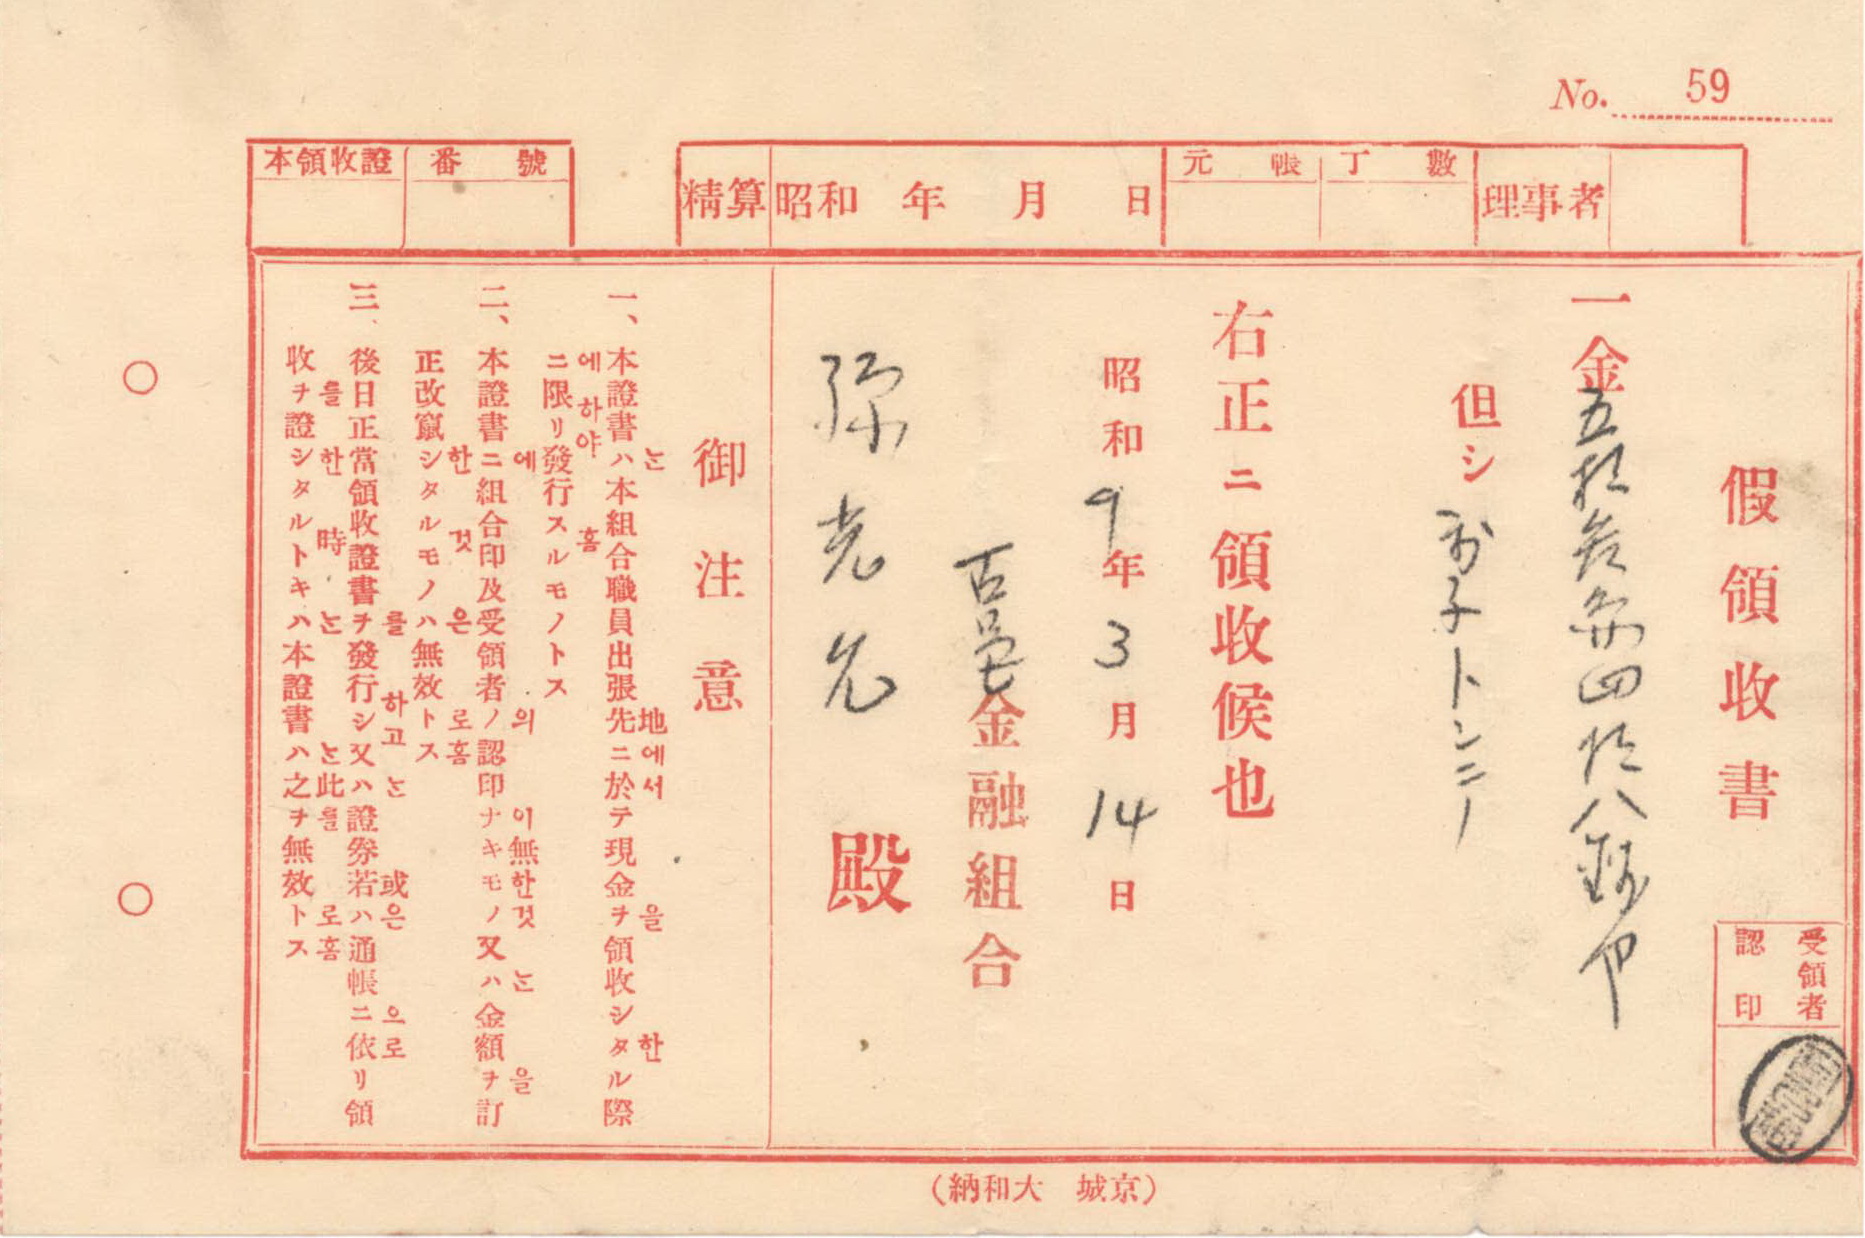 No. 59
理事者
元帳丁數
精算 昭和 年 月 日
番號
本領收證
假領收書
受領者
認印
一金五拾參円四拾八錢也
但シ 利子トシテ
右正ニ領收候也
昭和9年3月14日
古邑金融組合
孫光允 殿
御注意
一、本證書ハ本組合職員出張先ニ於テ現金ヲ領收シタル際
는 地에서 을 한
ニ限リ發行スルモノトス
에하야 홈
二、本證書ニ組合印及受領者ノ認印ナキモノ又ハ金額ヲ訂
에 의 이無한것 는 을
正改竄シタルモノハ無效トス
한 것 은 로홈
三、後日正當領收證書ヲ發行シ又ハ證券若ハ通帳ニ依リ領
를 하고 는 或은 으로
收ヲ證シタルトキハ本證書ハ之ヲ無效トス
를 한 時 는 는 此를 로홈
(京城 大和納)